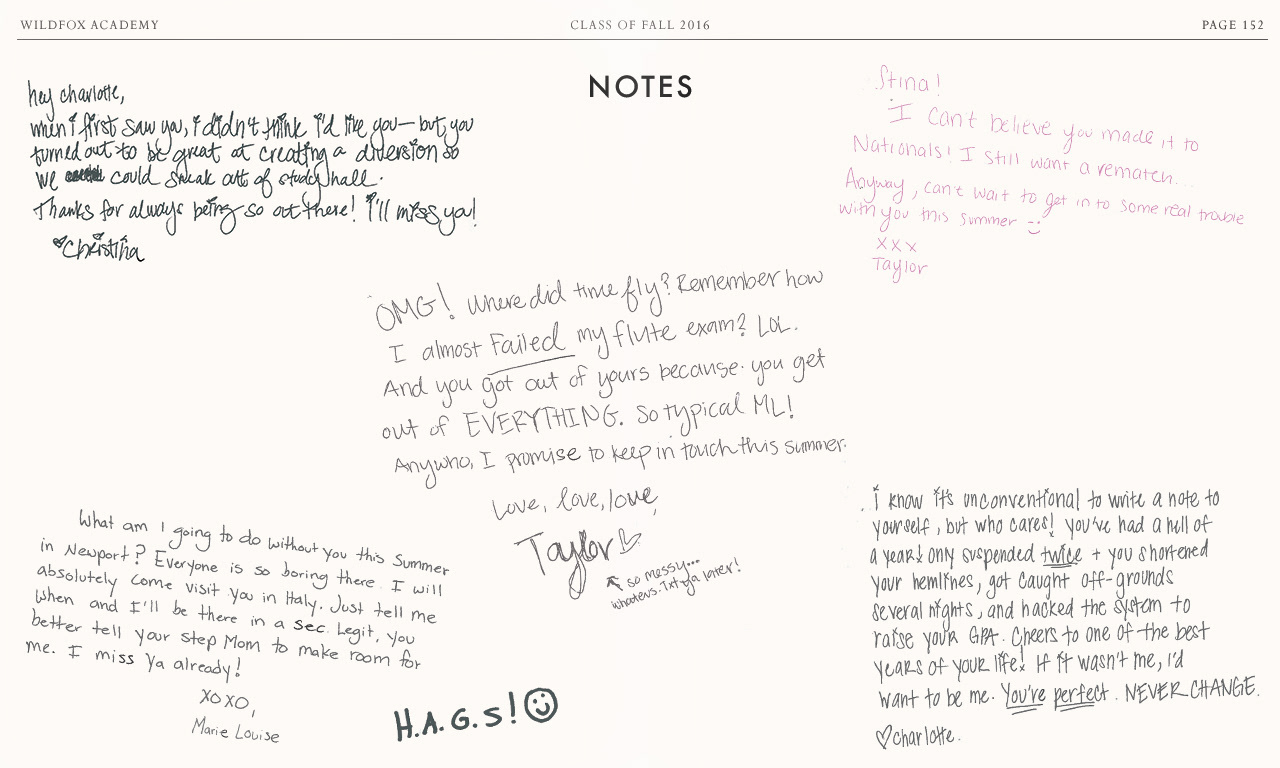 WILDFOX ACADEMY
CLASS OF FALL 2016
PAGE 152
NOTES
hey charlotte,
when i first saw you, i didn't think i'd like you— but, you
turned out to be great at creating a diversion so
we could sneak out of study hall.
Thanks for always being so out there! i'll miss ya!
♡Christina
Stina!
I can't believe you made it to
Nationals! I still want a rematch...
Anyway, can't wait to get in to some real trouble
with you this summer :)
xxx
Taylor
OMG! Where did time fly? Remember how
I almost Failed my flute exam? LOL.
And you got out of yours because you get
out of EVERYTHING. So typical ML!
Anywho, I promise to keep in touch this summer.
Love, love, love,
Taylor♡
so messy...
whatevs. Txt ya later!
What am I going to do without you this Summer
in Newport? Everyone is so boring there. I will
absolutely come visit you in Italy. Just tell me
when and I'll be there in a sec. Legit, you
better tell your step Mom to make room for
me. I miss ya already!
XOXO,
Marie Louise
H.A.G.S! ☺
i know it's unconventional to write a note to
yourself, but who cares! you've had a hell of
a year! only suspended twice + you shortened
your hemlines, got caught off-grounds
several nights, and hacked the system to
raise your GPA. Cheers to one of the best
years of your life! If it wasn't me, i'd
want to be me. You're perfect. NEVER CHANGE.
♡charlotte.